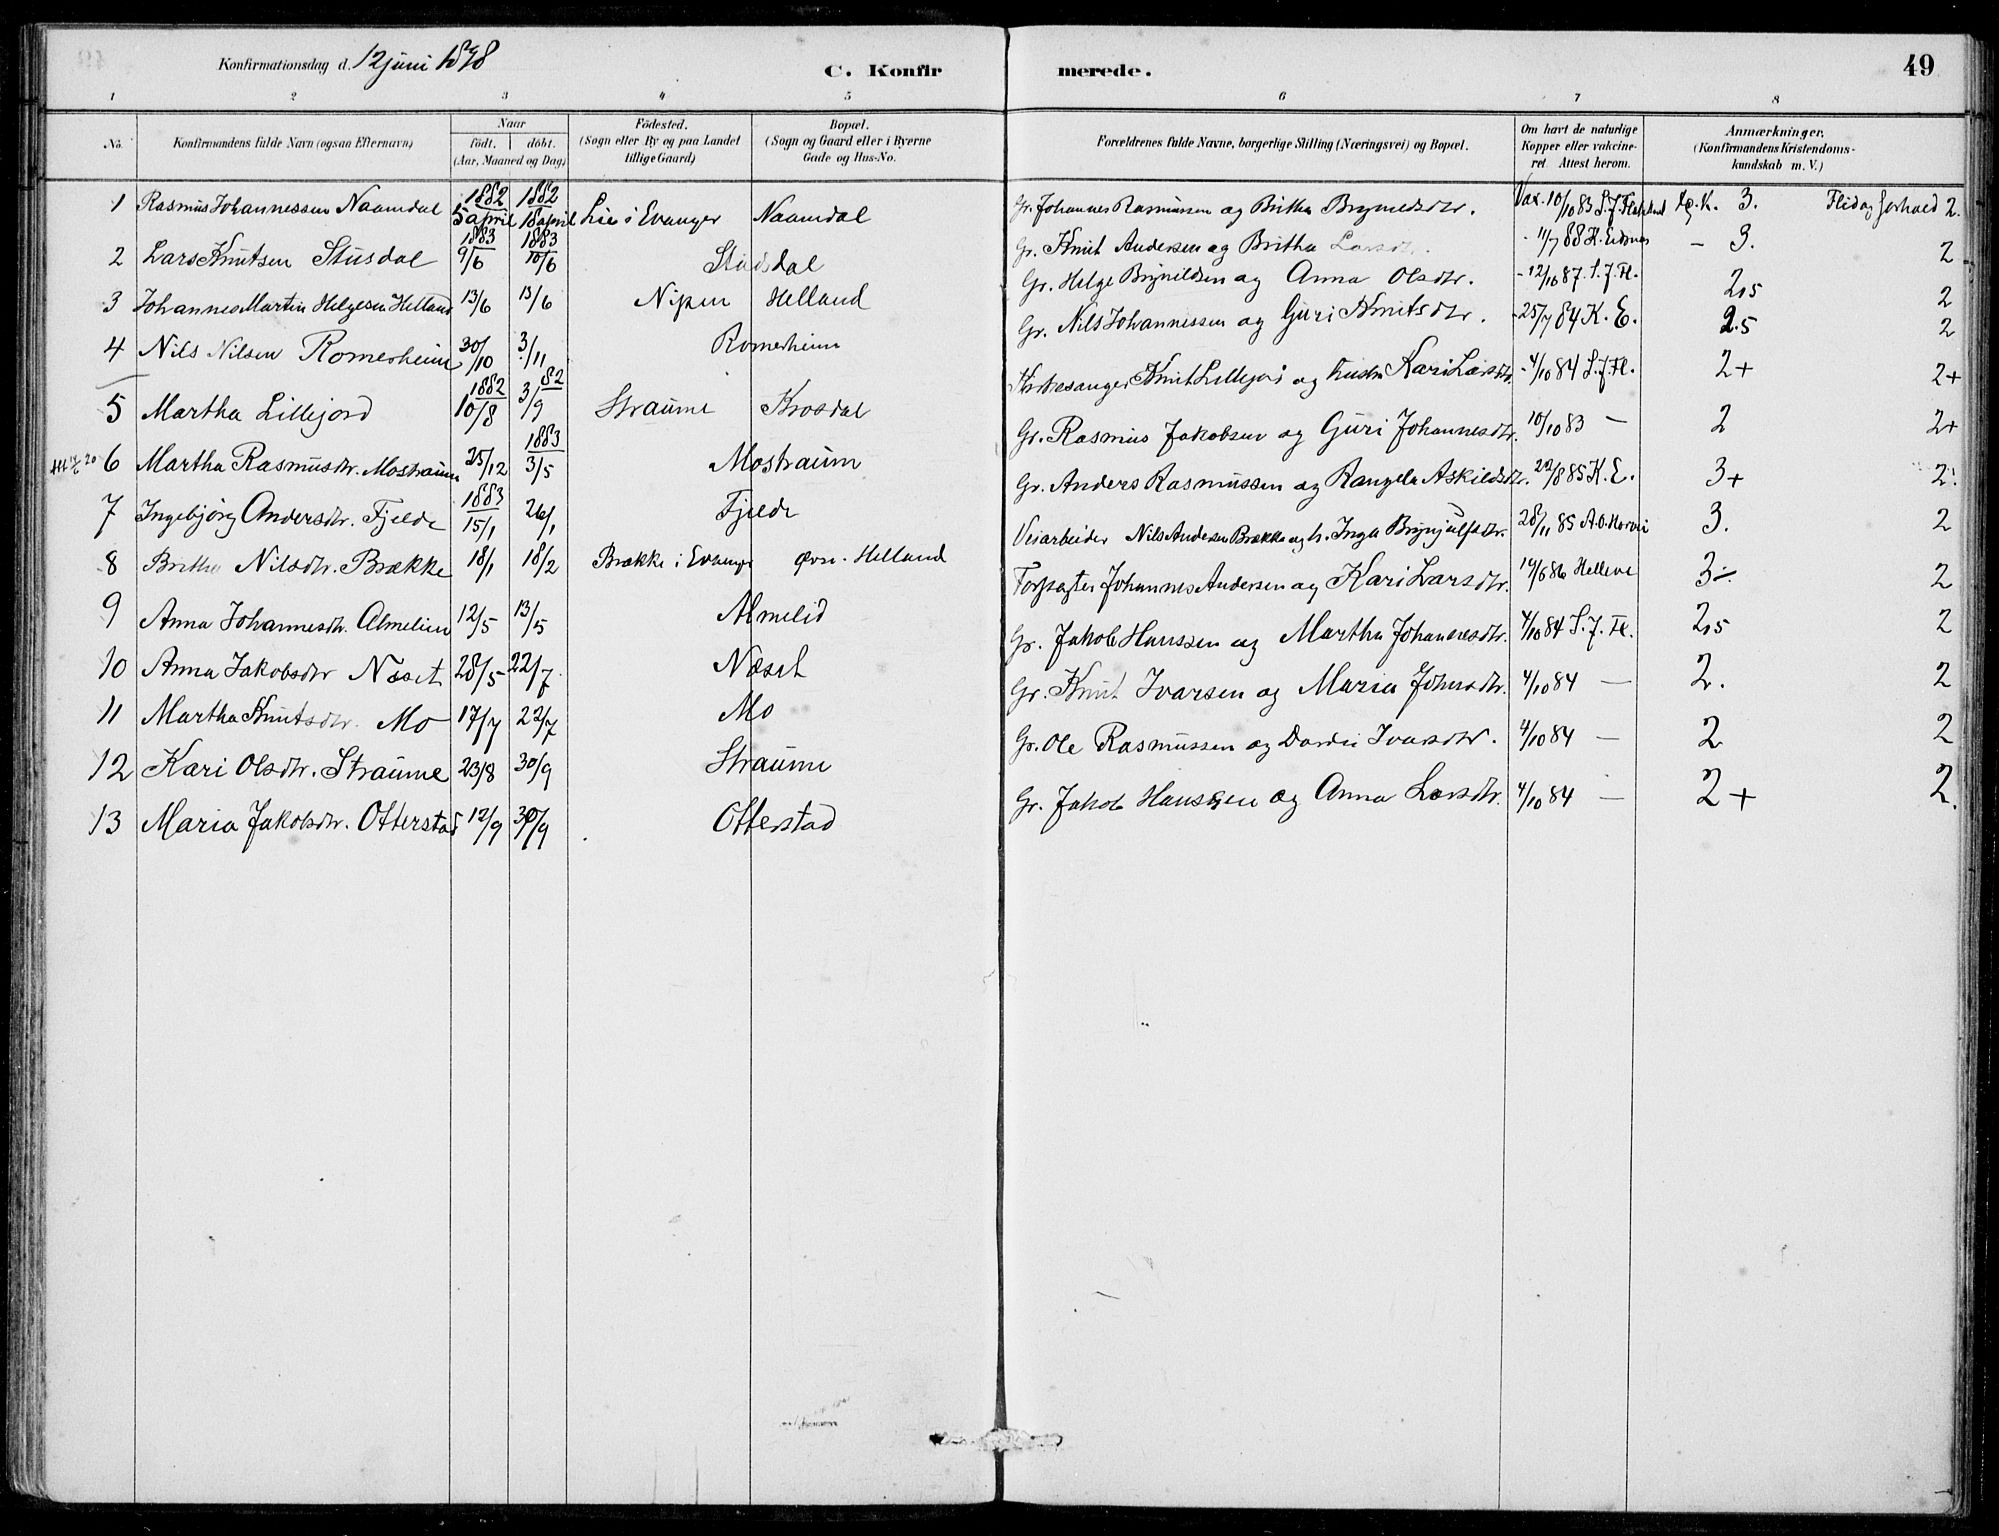 Konfirmationsdag d. 12 juni 1898
C. Konfirmerede.
49
1 2 3 4 5 6 7 8
No. Konfirmandens fulde Navn (ogsaa Efternavn) Naar født. døbt. (Aar, Maaned og Dag) Födested. (Sogn eller By og paa Landet tillige Gaard) Bopæl. (Sogn og Gaard eller i Byerne Gade og Hus-No. Forældrenes fulde Navne, borgerlige Stilling (Næringsvei) og Bopæl. Om havt de naturlige Kopper eller vakcineret. Attest herom. Anmærkninger. (Konfirmandens Kristendomskundskab m. V.)
1 Rasmus Johannessen Naamdal 1882 5 april 1882 18 april Lie i Evanger Naamdal Gr. Johannes Rasmussen og Britha Brynildsdtr. Vax. 10/10 83 S. J. Kr. K. 3. Flid og forhold 2.
2 Lars Knutsen Stusdal 1883 9/6 1883 10/6 Stusdal Gr. Knut Andersen og Britha Larsdtr. - 11/7 88 - 3. 2
3 Johannes Martin Helgesen Helland 13/6 13/6 Nipen Helland Gr. Helge Brynildsen og Anna Olsdtr. - 12/10 87. S. J. Fl. 2,5 2
4 Nils Nilsen Romerheim 30/10 3/11 Romerheim Gr. Nils Johannessen og Guri Knutsdtr. - 25/7 84 K. E. 2.5 2
5 Martha Lillejord 1882 10/8 82 3/9 Straume Krosdal Kirkesanger Knut Lillejord og hustru Kari Larsdtr. - 4/10 84 S. J. Fl. 2+ 2+
6 Martha Rasmusdtr. Mostraum 25/12 1883 3/5 Mostraum Gr. Rasmus Jakobsen og Guri Johannesdtr. 10/10 83 — 2 2+
7 Ingebjørg Andersdtr. Fjelde 1883 15/1 26/1 Fjelde Gr. Anders Rasmussen og Rangela Askildsdtr. 22/8 85 K. E. 3+ 2
8 Britha Nilsdtr. Brække 18/1 18/2 Brække i Evanger øvre Helland Veiarbeider Nils Andersen Brække og h. Inga Brynjulfsdtr. 28/11 85 A. O. 3. 2
9 Anna Johannesdtr. Almelien 12/5 13/5 Almelid Johannes Andersen og Kari Larsdtr. 14/6 86 Helleve 3÷ 2
10 Anna Jakobsdtr Næset 28/5 22/7 Næset Gr. Jakob Hanssen og Martha Johannesdtr. 4/10 84 S. J. Fl. 2,5 2
11 Martha Knutsdtr. Mo 17/7 22/7 Mo Gr. Knut Ivarsen og Maria Johnsdtr. 4/10 84 — 2. 2
12 Kari Olsdtr. Straume 23/8 30/9 Straume Gr. Ole Rasmussen og Dordei Ivarsdtr. 4/10 84 — 2 2
13 Maria Jakobsdtr. Otterstad 12/9 30/9 Otterstad Gr. Jakob Hanssen og Anna Larsdtr. 4/10 84 — 2+ 2.